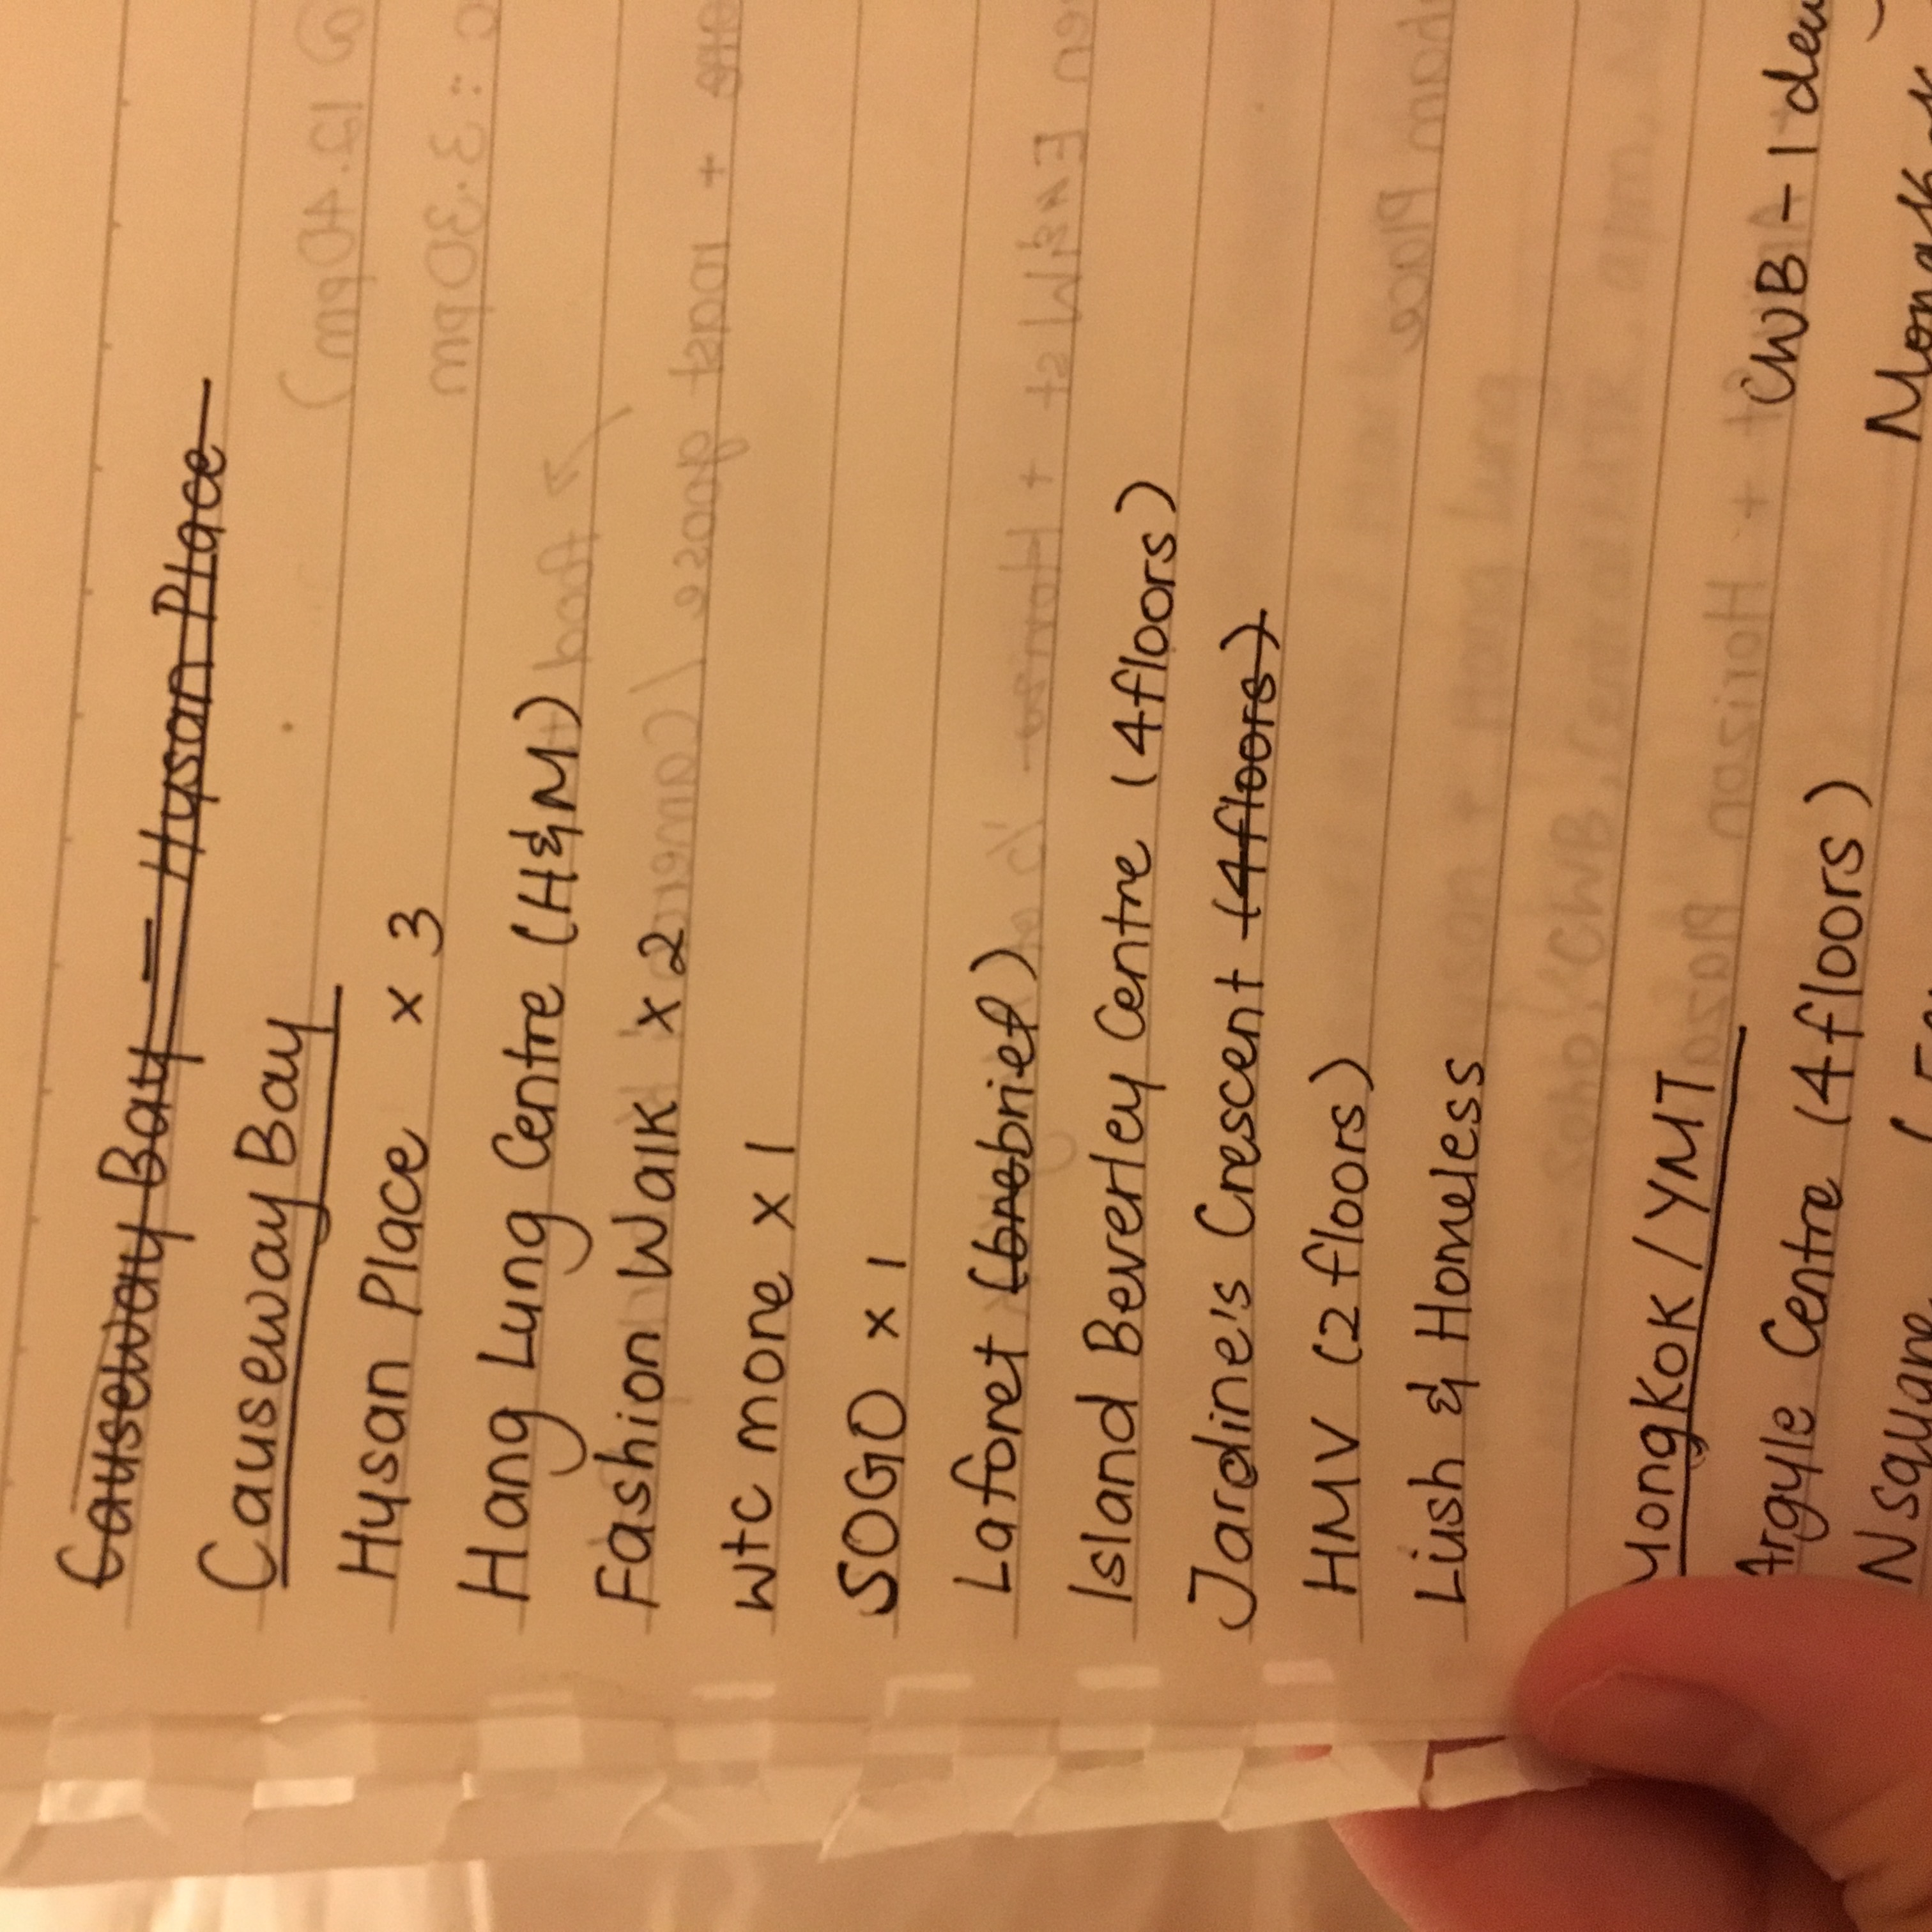 Causeway Bay = Hysan Place
Causeway Bay
Hysan Place x 3
Hang Lung Centre (H&M)
Fashion Walk x 2
WTC more x 1
SOGO x 1
Laforet (bnebrief)
Island Beverley Centre (4floors)
Jardine's Crescent (4floors)
HMV (2 floors)
Lush & Homeless
MongKoK / YMT
Argyle Centre (4floors) CWB - 1